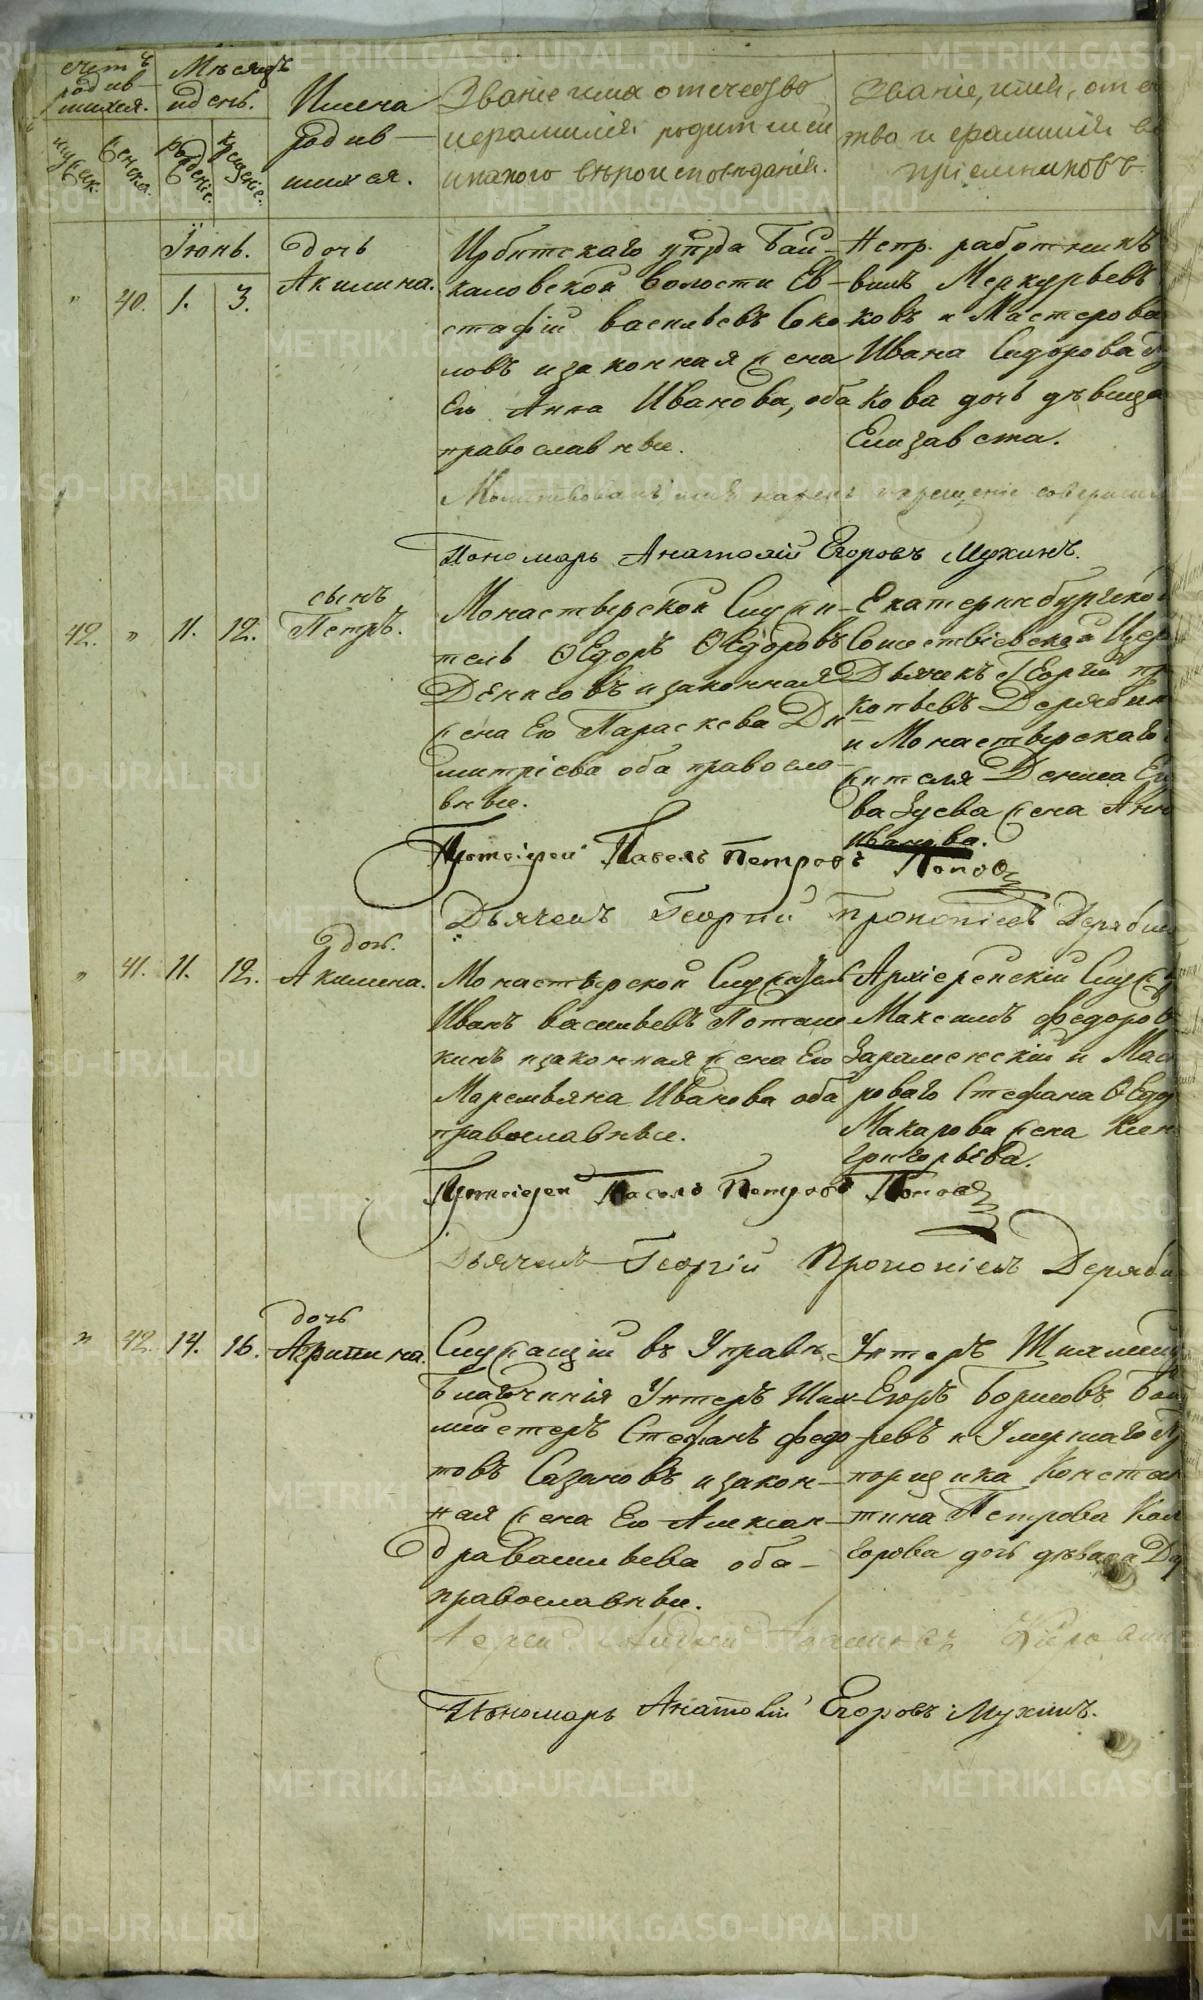 счетъ родив-
шихся.
Мѣсяцъ
и день.
Имена
родив-
шихся.
Званіе имя отечество
и фамилія родителей
и какого вѣроисповѣданія.
Званіе, имя, отече
тво и фамилія во
пріемниковъ
мужск.
женска.
рожденіе.
крещеніе.
Іюнь.
" 40. 1. 3.
дочь
Акилина.
Ирбитскаго уѣзда Бай-
каловской волости Ев-
стафій Васильевъ Соко
ловъ и законная жена
Его Анна Иванова, оба
православные.
Непр. работникъ
Меркурьевъ
ковъ и Мастерова
Ивана Сидорова
кова дочь дѣвица
Елизавета.
Молитвовалъ имя нарекъ и крещеніе совершилъ
Пономарь Анатолій Егоровъ Мухинъ.
42. " 11. 12.
сынъ
Петръ.
Монастырской Служи-
тель Ѳедоръ Ѳедоровъ
Денисовъ и законная
жена Его Параскева Ди
митріева оба правосла-
вные.
Екатеринбургской
Сошествіевской Цер
Дьячекъ Георгій Про
копьевъ Дерябин
и Монастырскаго
жителя Дениса Его
ва Зуева жена Анна
Иванова.
Протоіерей Павелъ Петровъ Поповъ
Дьячекъ Георгій Прокопіевъ Дерябин
" 41. 11. 12.
дочь.
Акилина.
Монастырской Служитель
Иванъ Васильевъ Поташ
кинъ и законная жена Его
Маремьяна Иванова оба
православные.
Архіерейскій Служ
Максимъ Федоров
Зараменскій и Мас
роваго Стефана Ѳедо
Макарова жена Ксен
Григорьева.
Протоіерей Павелъ Петровъ Поповъ
Дьячекъ Георгій Прокопіевъ Деряби
" 42. 14. 16.
дочь
Агрипина.
Служащій въ Управѣ
Благочинія Унтеръ Шах-
мейстеръ Стефанъ Федо
товъ Сазановъ и закон-
ная жена Его Алексан-
дра Васильева оба-
православные.
Унтеръ Шихмей
Егоръ Борисовъ
ревъ и Умершаго
поришика Констан
тина Петрова Кал
Егорова дочь дѣвица
Пономарь Анатолій Егоровъ Мухинъ.
METRIKI.GASO-URAL.RU